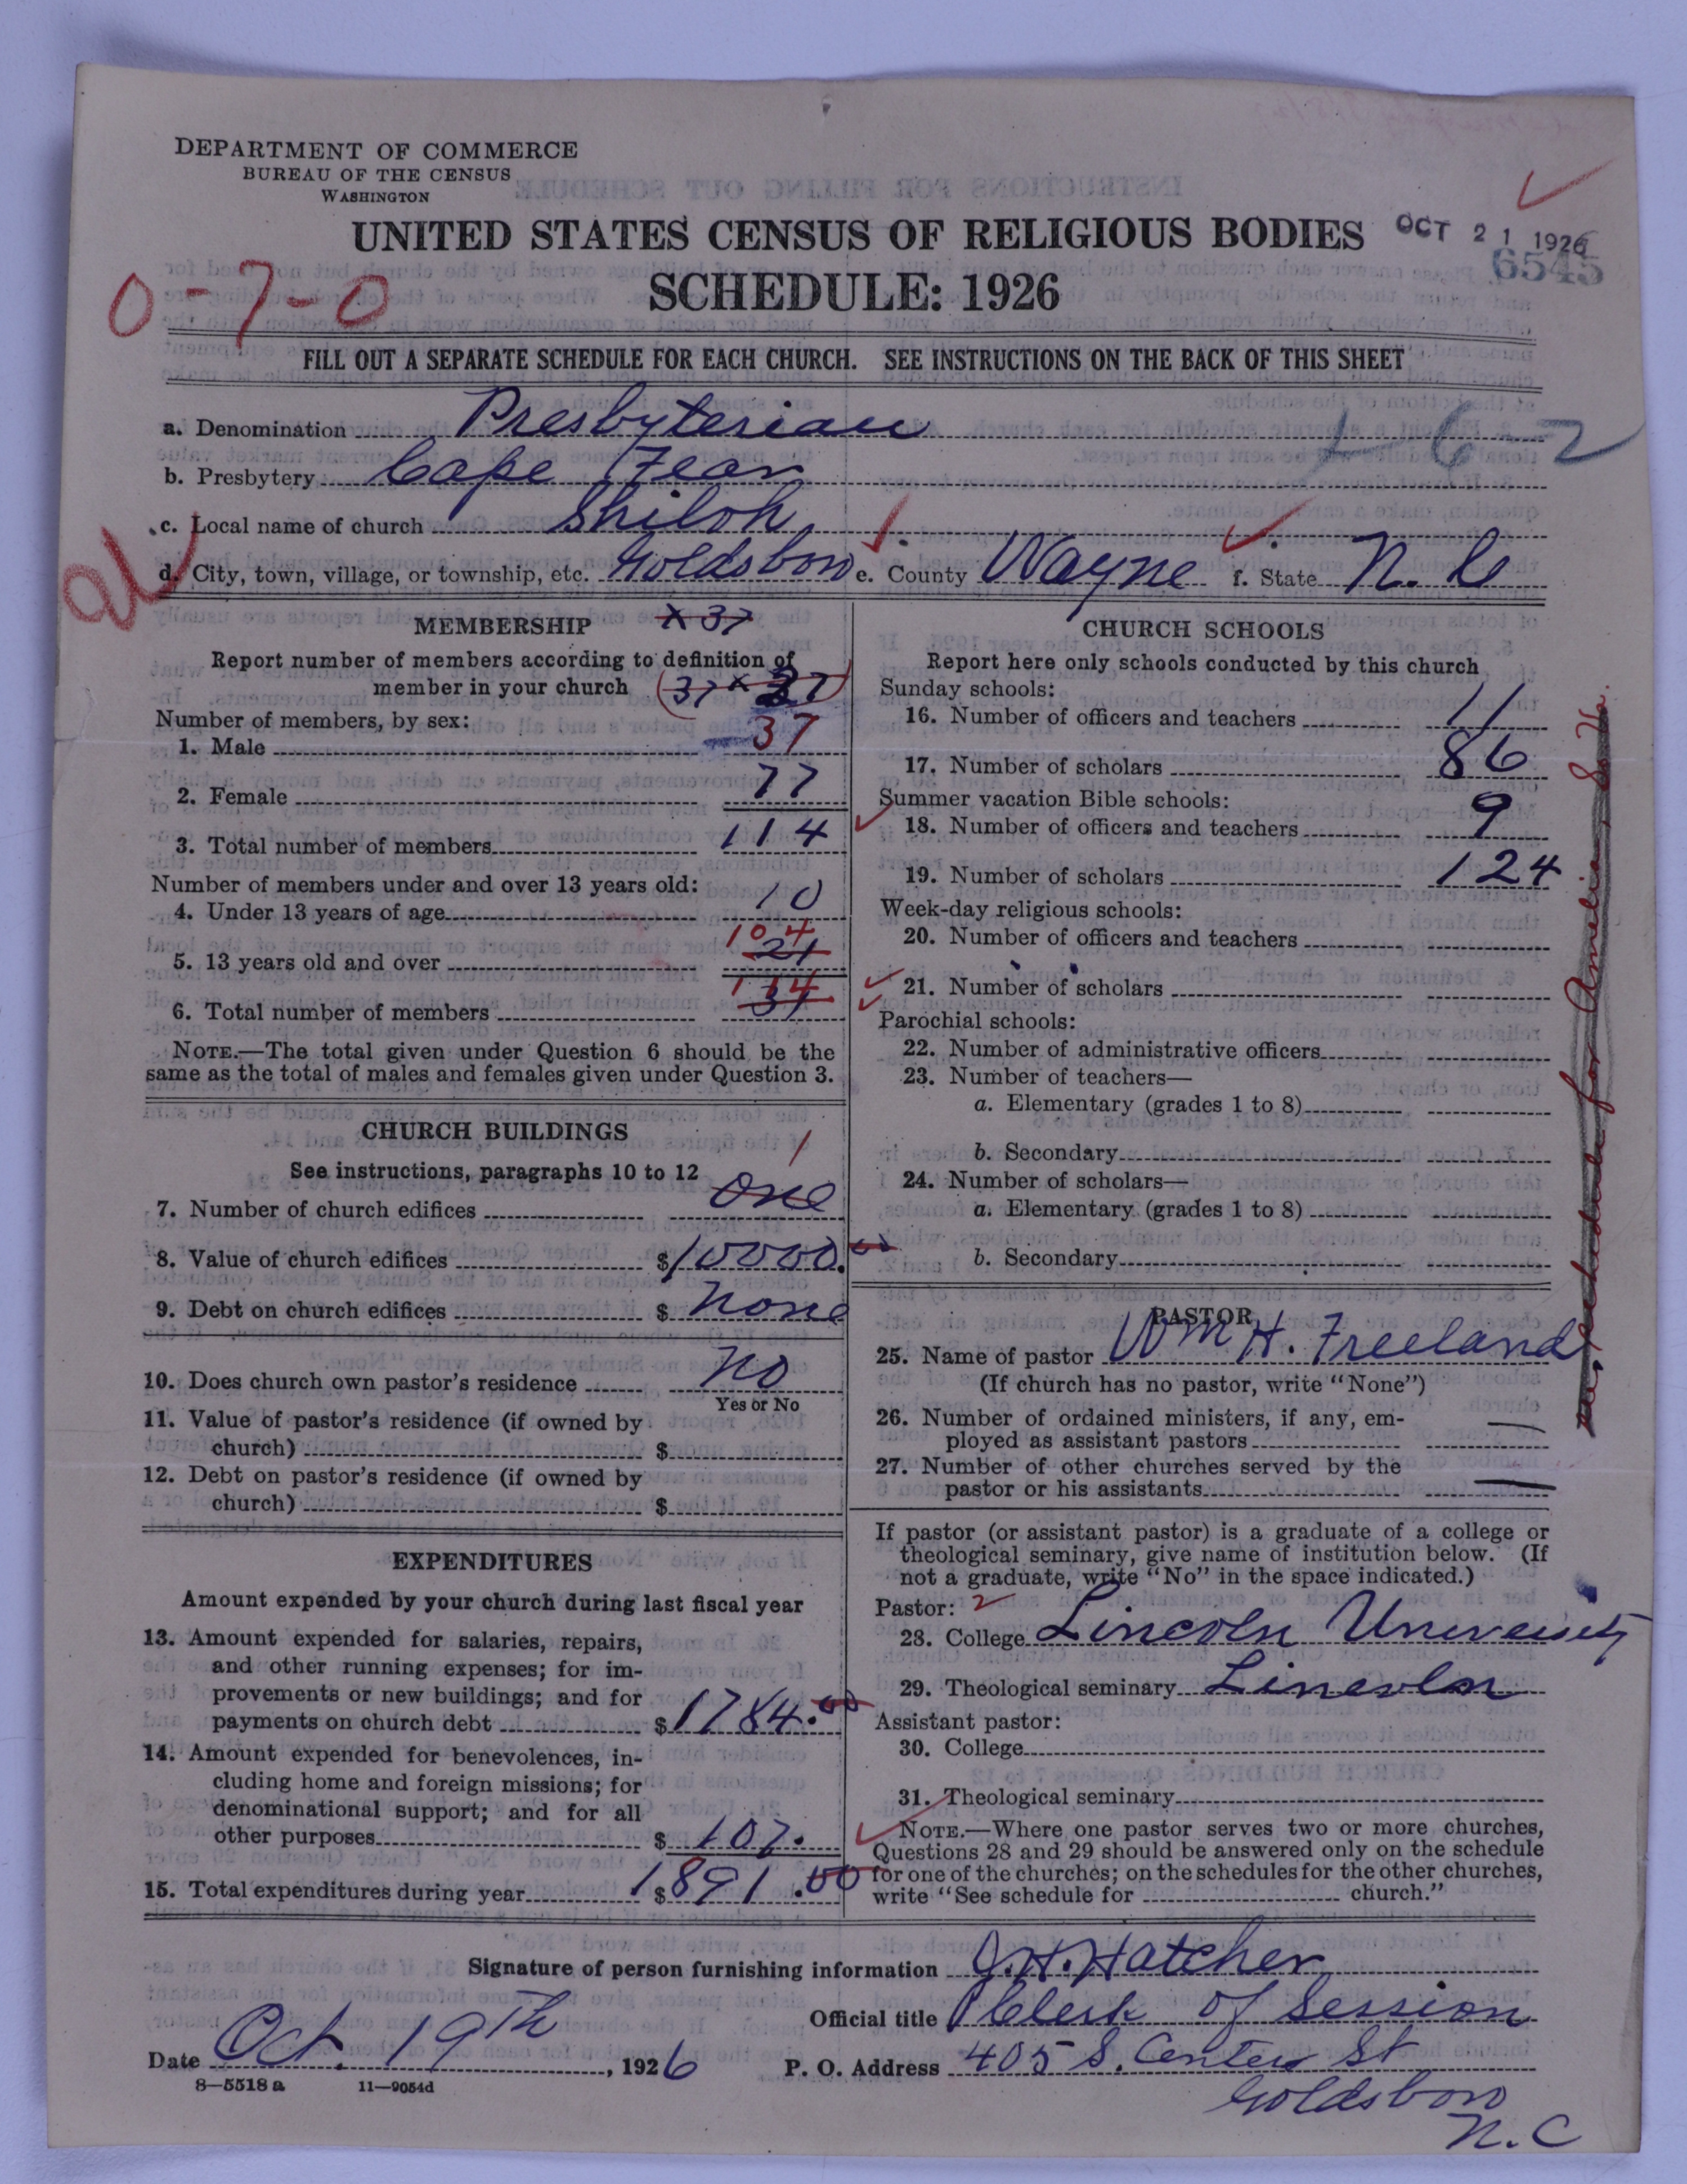 DEPARTMENT OF COMMERCE
BUREAU OF THE CENSUS
WASHINGTON
UNITED STATES CENSUS OF RELIGIOUS BODIES
OCT 21 1926
6545
SCHEDULE: 1926
0-7-0
FILL OUT A SEPARATE SCHEDULE FOR EACH CHURCH. SEE INSTRUCTIONS ON THE BACK OF THIS SHEET
a. Denomination Presbyterian
1-6-2
b. Presbytery Cape Fear
c. Local name of church Shiloh
d. City, town, village, or township, etc. Goldsboro e. County Wayne f. State N. C
MEMBERSHIP
x 37
Report number of members according to definition of
member in your church (37 x 37)
Number of members, by sex:
1. Male 37
2. Female 77
3. Total number of members 114
Number of members under and over 13 years old:
4. Under 13 years of age 10
104
5. 13 years old and over 21
114
6. Total number of members 31
NOTE.—The total given under Question 6 should be the
same as the total of males and females given under Question 3.
CHURCH BUILDINGS
See instructions, paragraphs 10 to 12
1
7. Number of church edifices One
8. Value of church edifices $10000.00
9. Debt on church edifices $ None
10. Does church own pastor's residence No
Yes or No
11. Value of pastor's residence (if owned by
church) $
12. Debt on pastor's residence (if owned by
church) $
EXPENDITURES
Amount expended by your church during last fiscal year
13. Amount expended for salaries, repairs,
and other running expenses; for im-
provements or new buildings; and for
payments on church debt $1784.00
14. Amount expended for benevolences, in-
cluding home and foreign missions; for
denominational support; and for all
other purposes $ 107.
15. Total expenditures during year $1891.00
CHURCH SCHOOLS
Report here only schools conducted by this church
Sunday schools:
16. Number of officers and teachers 11
17. Number of scholars 86
Summer vacation Bible schools:
18. Number of officers and teachers 9
19. Number of scholars 124
Week-day religious schools:
20. Number of officers and teachers
21. Number of scholars
Parochial schools:
22. Number of administrative officers
23. Number of teachers—
a. Elementary (grades 1 to 8)
b. Secondary
24. Number of scholars—
a. Elementary (grades 1 to 8)
b. Secondary
PASTOR
25. Name of pastor Wm H. Freeland
(If church has no pastor, write "None")
26. Number of ordained ministers, if any, em-
ployed as assistant pastors —
27. Number of other churches served by the
pastor or his assistants —
If pastor (or assistant pastor) is a graduate of a college or
theological seminary, give name of institution below. (If
not a graduate, write "No" in the space indicated.)
Pastor: 2
28. College Lincoln University
29. Theological seminary Lincoln
Assistant pastor:
30. College
31. Theological seminary
NOTE.—Where one pastor serves two or more churches,
Questions 28 and 29 should be answered only on the schedule
for one of the churches; on the schedules for the other churches,
write "See schedule for church."
schedule for Amelia
Signature of person furnishing information J. H. Hatcher
Official title Clerk of Session
Date Oct. 19th, 1926
P. O. Address 405 S. Center St
Goldsboro
N. C
8—5518 a 11—9054d